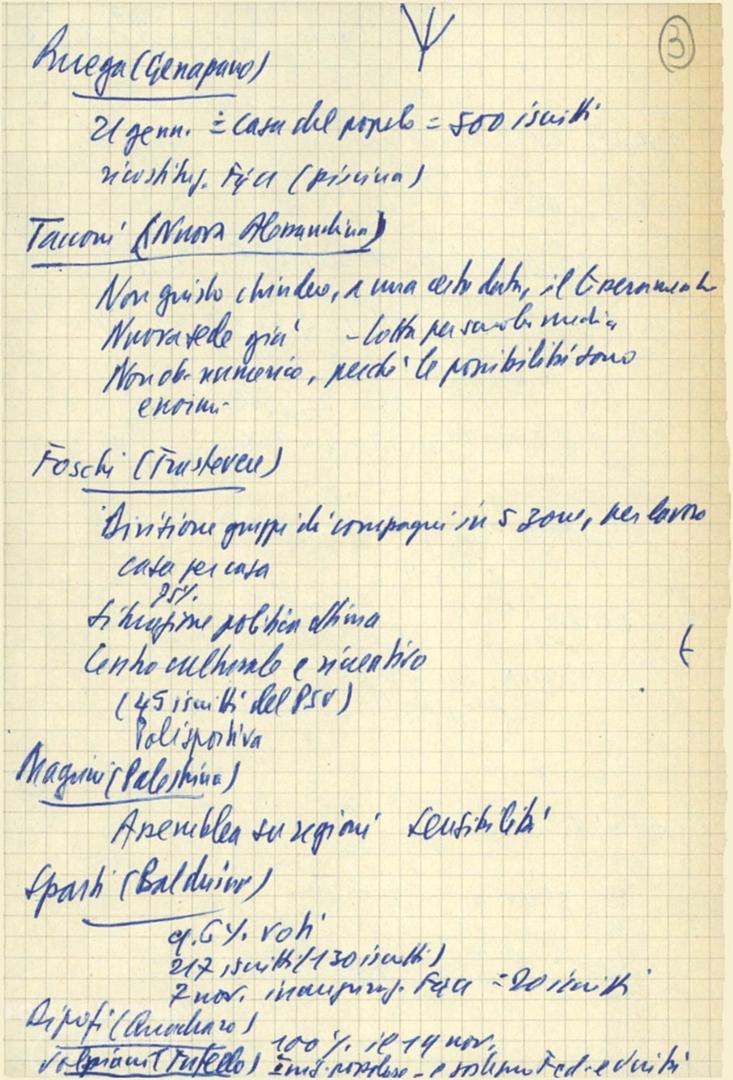 3
Ruega (Genazzano)
21 genn. = Casa del popolo = 500 iscritti
ricostituz. Fgci (piscina)
Tacconi (Nuova Alessandrina)
Non giusto chiudere, a una certa data, il tesseramento
Nuova sede già - lotta per scuola media
Non ob. numerico, perché le possibilità sono
enormi
Foschi (Trastevere)
Divisione gruppi di compagni in 5 zone, per lavoro
casa per casa
75%
Situazione politica ottima
Centro culturale e ricreativo
(45 iscritti del PSU)
Polisportiva
Magrini (Palestrina)
Assemblea su regioni sensibilità
Sparti (Balduina)
9.6% voti
217 iscritti (130 iscritti)
7 nov. inauguraz. Fgci = 20 iscritti
(Quadraro)
100% il 19 nov.
Volpiani (Tufello)